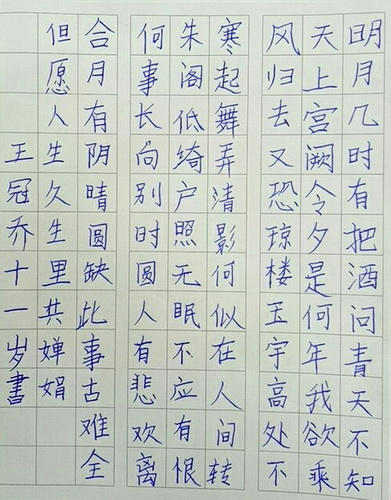 明月几时有把酒问青天不知
天上宫阙令夕是何年我欲乘
风归去又恐琼楼玉宇高处不
寒起舞弄清影何似在人间转
朱阁低绮户照无眠不应有恨
何事长向别时圆人有悲欢离
合月有阴晴圆缺此事古难全
但愿人生久生里共婵娟
王冠乔十一岁書